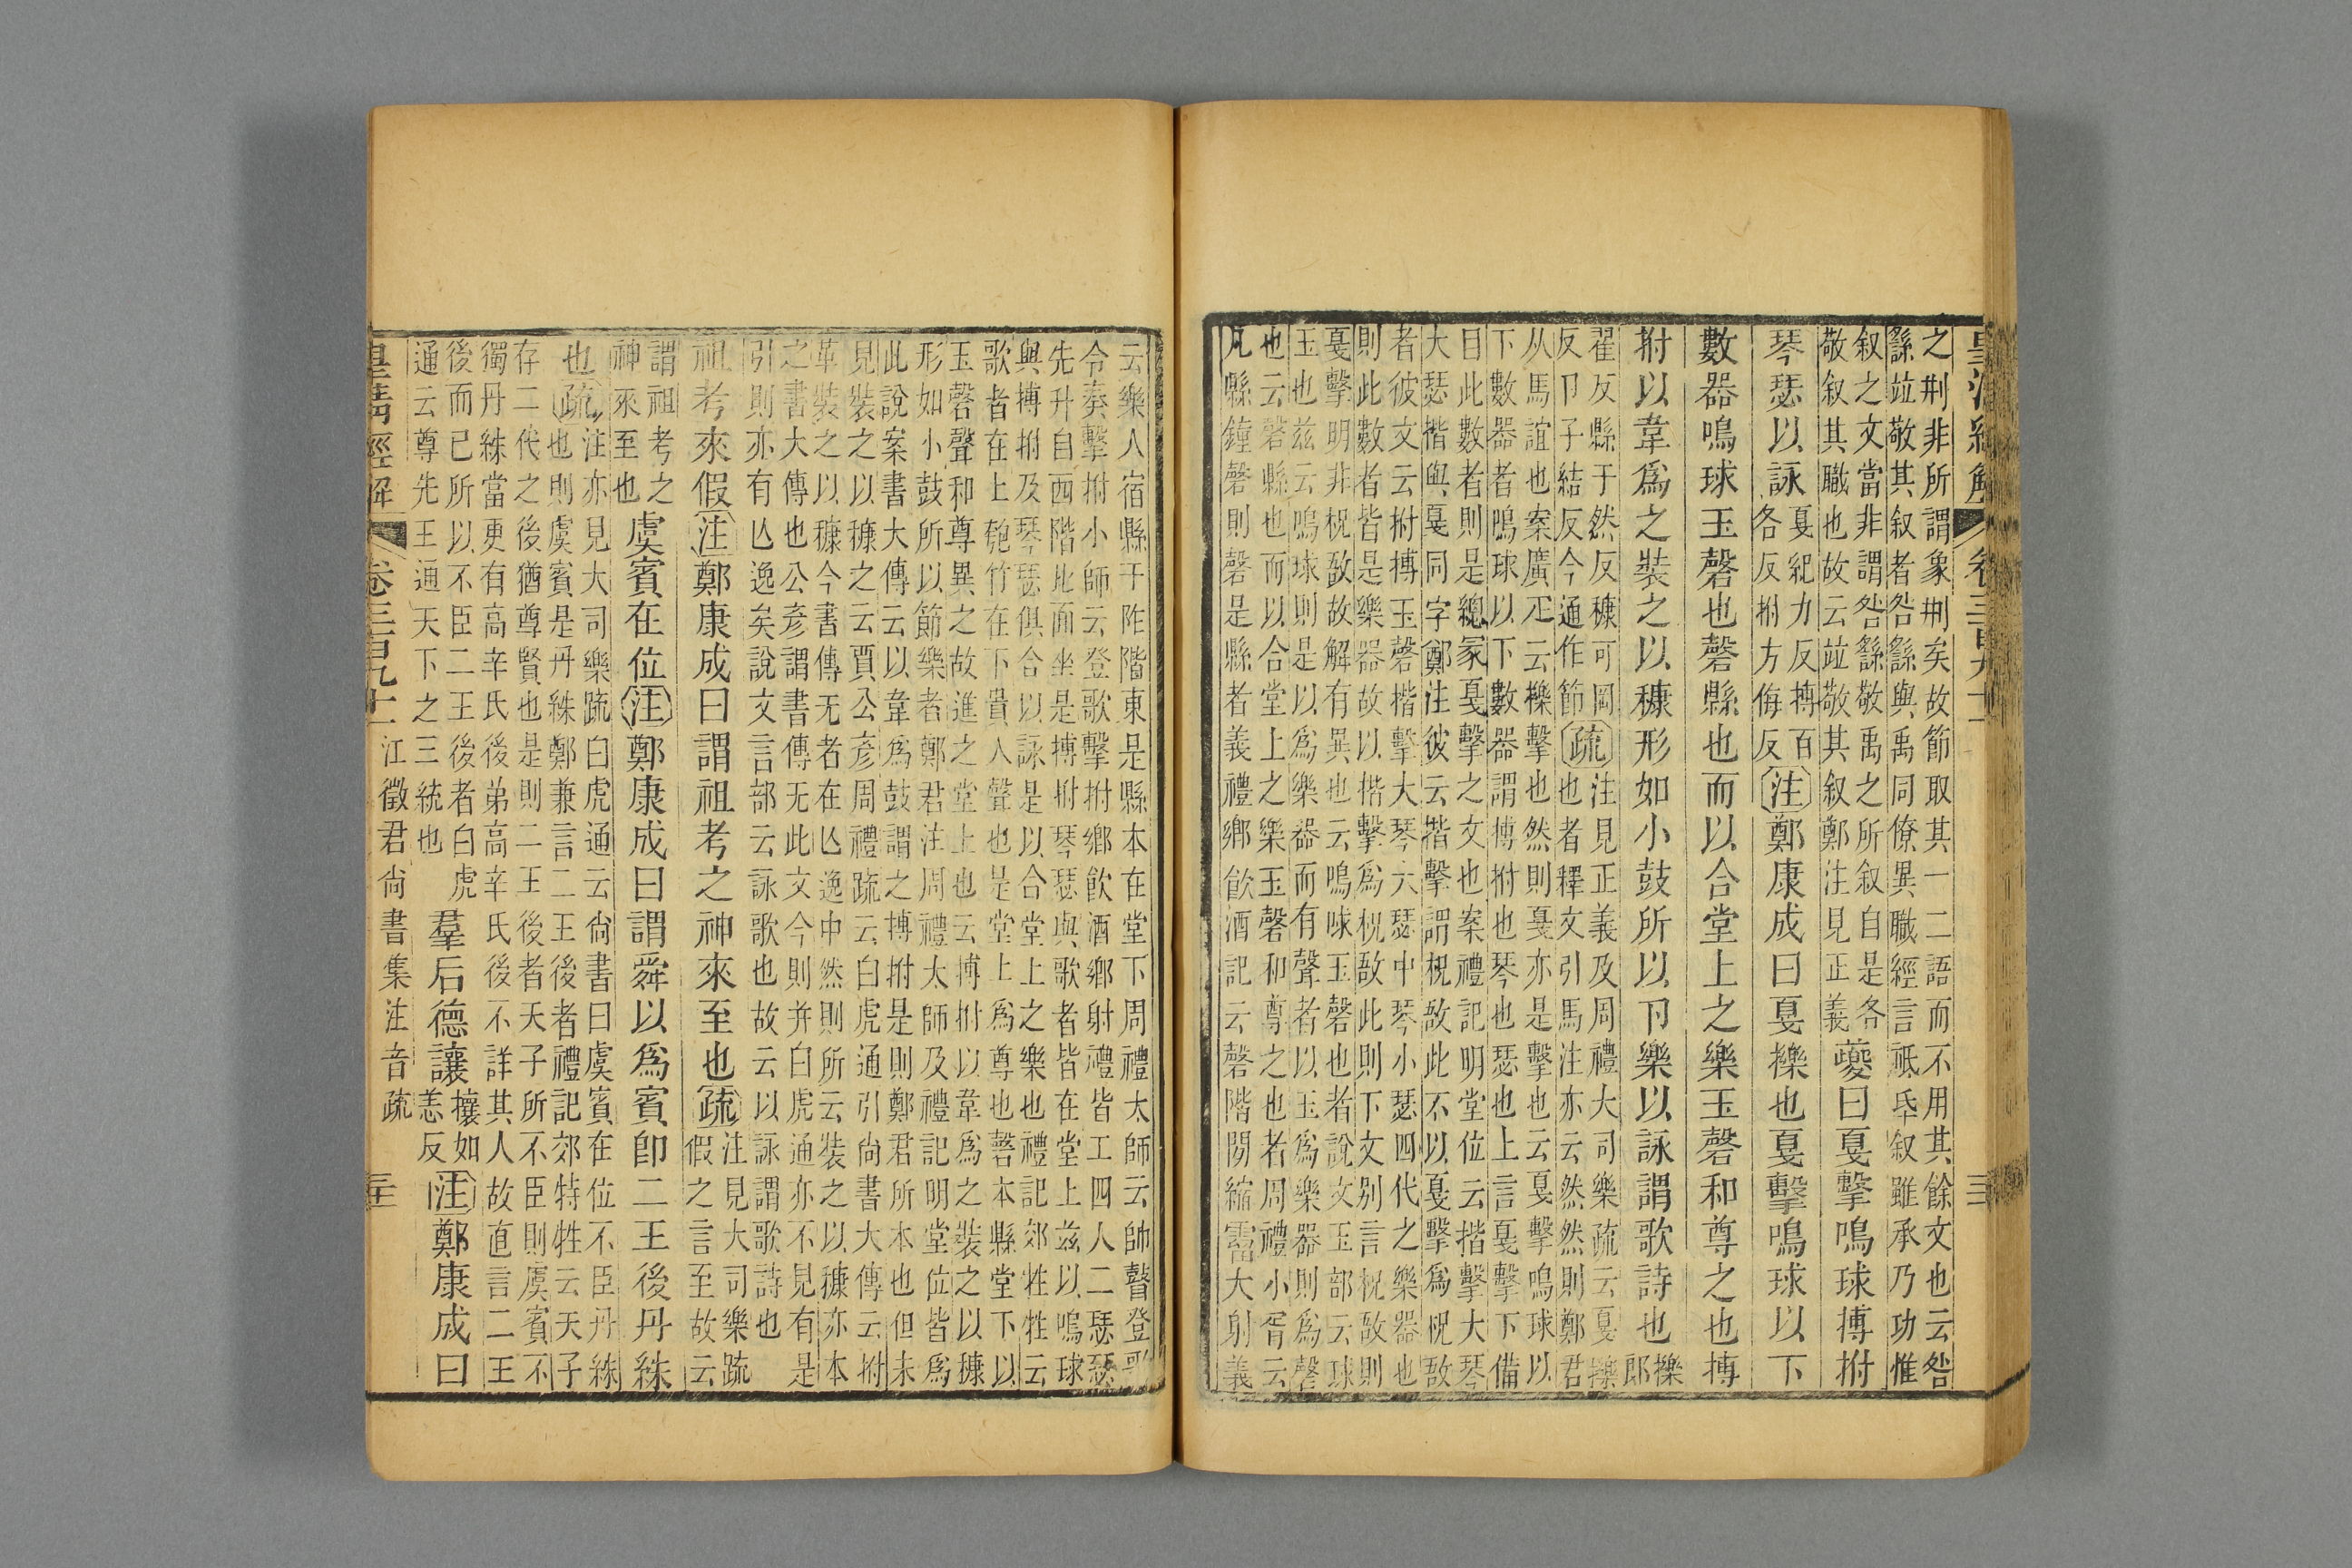 皇清經解 卷三百九十一
之㓝非所謂象㓝矣故節取其一二語而不用其餘文也云咎
繇竝敬其叙者咎繇與禹同僚異職經言祗氒叙雖承乃功惟
叙之文當非謂咎繇敬禹之所叙自是各
敬叙其職也故云竝敬其叙鄭注見正義
夔曰戛擊鳴球搏拊
琴瑟以詠
戛紀力反搏百
各反拊方侮反
注鄭康成曰戛擽也戛擊鳴球以下
數器鳴球玉磬也磬縣也而以合堂上之樂玉磬和尊之也搏
拊以韋爲之裝之以穅形如小鼓所以卪樂以詠謂歌詩也
擽郎
翟反縣于然反穅可岡
反卪子結反今通作節
疏
注見正義及周禮大司樂疏云戛擽
也者釋文引馬注亦云然然則鄭君
从馬誼也案廣疋云擽擊也然則戛亦是擊也云戛擊鳴球以
下數器者鳴球以下數器謂搏拊也琴也瑟也上言戛擊下備
目此數者則是緫冡戛擊之文也案禮記明堂位云揩擊大琴
大瑟揩與戛同字鄭注彼云揩擊謂柷敔此不以戛擊爲柷敔
者彼文云拊搏玉磬揩擊大琴大瑟中琴小瑟四代之樂器也
則此數者皆是樂器故以揩擊爲柷敔此則下文别言柷敔則
戛擊明非柷敔故解有異也云鳴球玉磬也者說文玉部云球
玉也兹云鳴球則是以爲樂器而有聲者以玉爲樂器則爲磬
也云磬縣也而以合堂上之樂玉磬和尊之也者周禮小胥云
凡縣鐘磬則磬是縣者義禮鄉飮酒記云磬階閒縮霤大射義
云樂人宿縣于阼階東是縣本在堂下周禮太師云帥瞽登歌
令奏擊拊小師云登歌擊拊鄉飮酒鄉射禮皆工四人二瑟瑟
先升自西階北面坐是搏拊琴瑟與歌者皆在堂上兹以鳴球
與搏拊及琴瑟俱合以詠是以合堂上之樂也禮記郊牲牲云
歌者在上匏竹在下貴人聲也是堂上爲尊也磬本縣堂下以
玉磬聲和尊異之故進之堂上也云搏拊以韋爲之裝之以穅
形如小鼓所以節樂者鄭君注周禮太師及禮記明堂位皆爲
此說案書大傳云以韋爲鼓謂之搏拊是則鄭君所本也但未
見裝之以穅之云賈公彥周禮疏云白虎通引尙書大傳云拊
革裝之以穅今書傳无者在亾逸中然則所云裝之以穅亦本
之書大傳也公彥謂書傳无此文今則并白虎通亦不見有是
引則亦有亾逸矣說文言部云詠歌也故云以詠謂歌詩也
祖考來假注鄭康成曰謂祖考之神來至也疏
注見大司樂疏
假之言至故云
謂祖考之
神來至也
虞賓在位注鄭康成曰謂舜以爲賓卽二王後丹絑
也疏
注亦見大司樂疏白虎通云尙書曰虞賓在位不臣丹絑
也則虞賓是丹絑鄭兼言二王後者禮記郊特牲云天子
存二代之後猶尊賢也是則二王後者天子所不臣則虞賓不
獨丹絑當更有高辛氏後弟高辛氏後不詳其人故直言二王
後而已所以不臣二王後者白虎
通云尊先王通天下之三統也
羣后德讓
攘如
恙反
注鄭康成曰
皇清經解 卷三百九十一 江徵君尙書集注音疏 三十